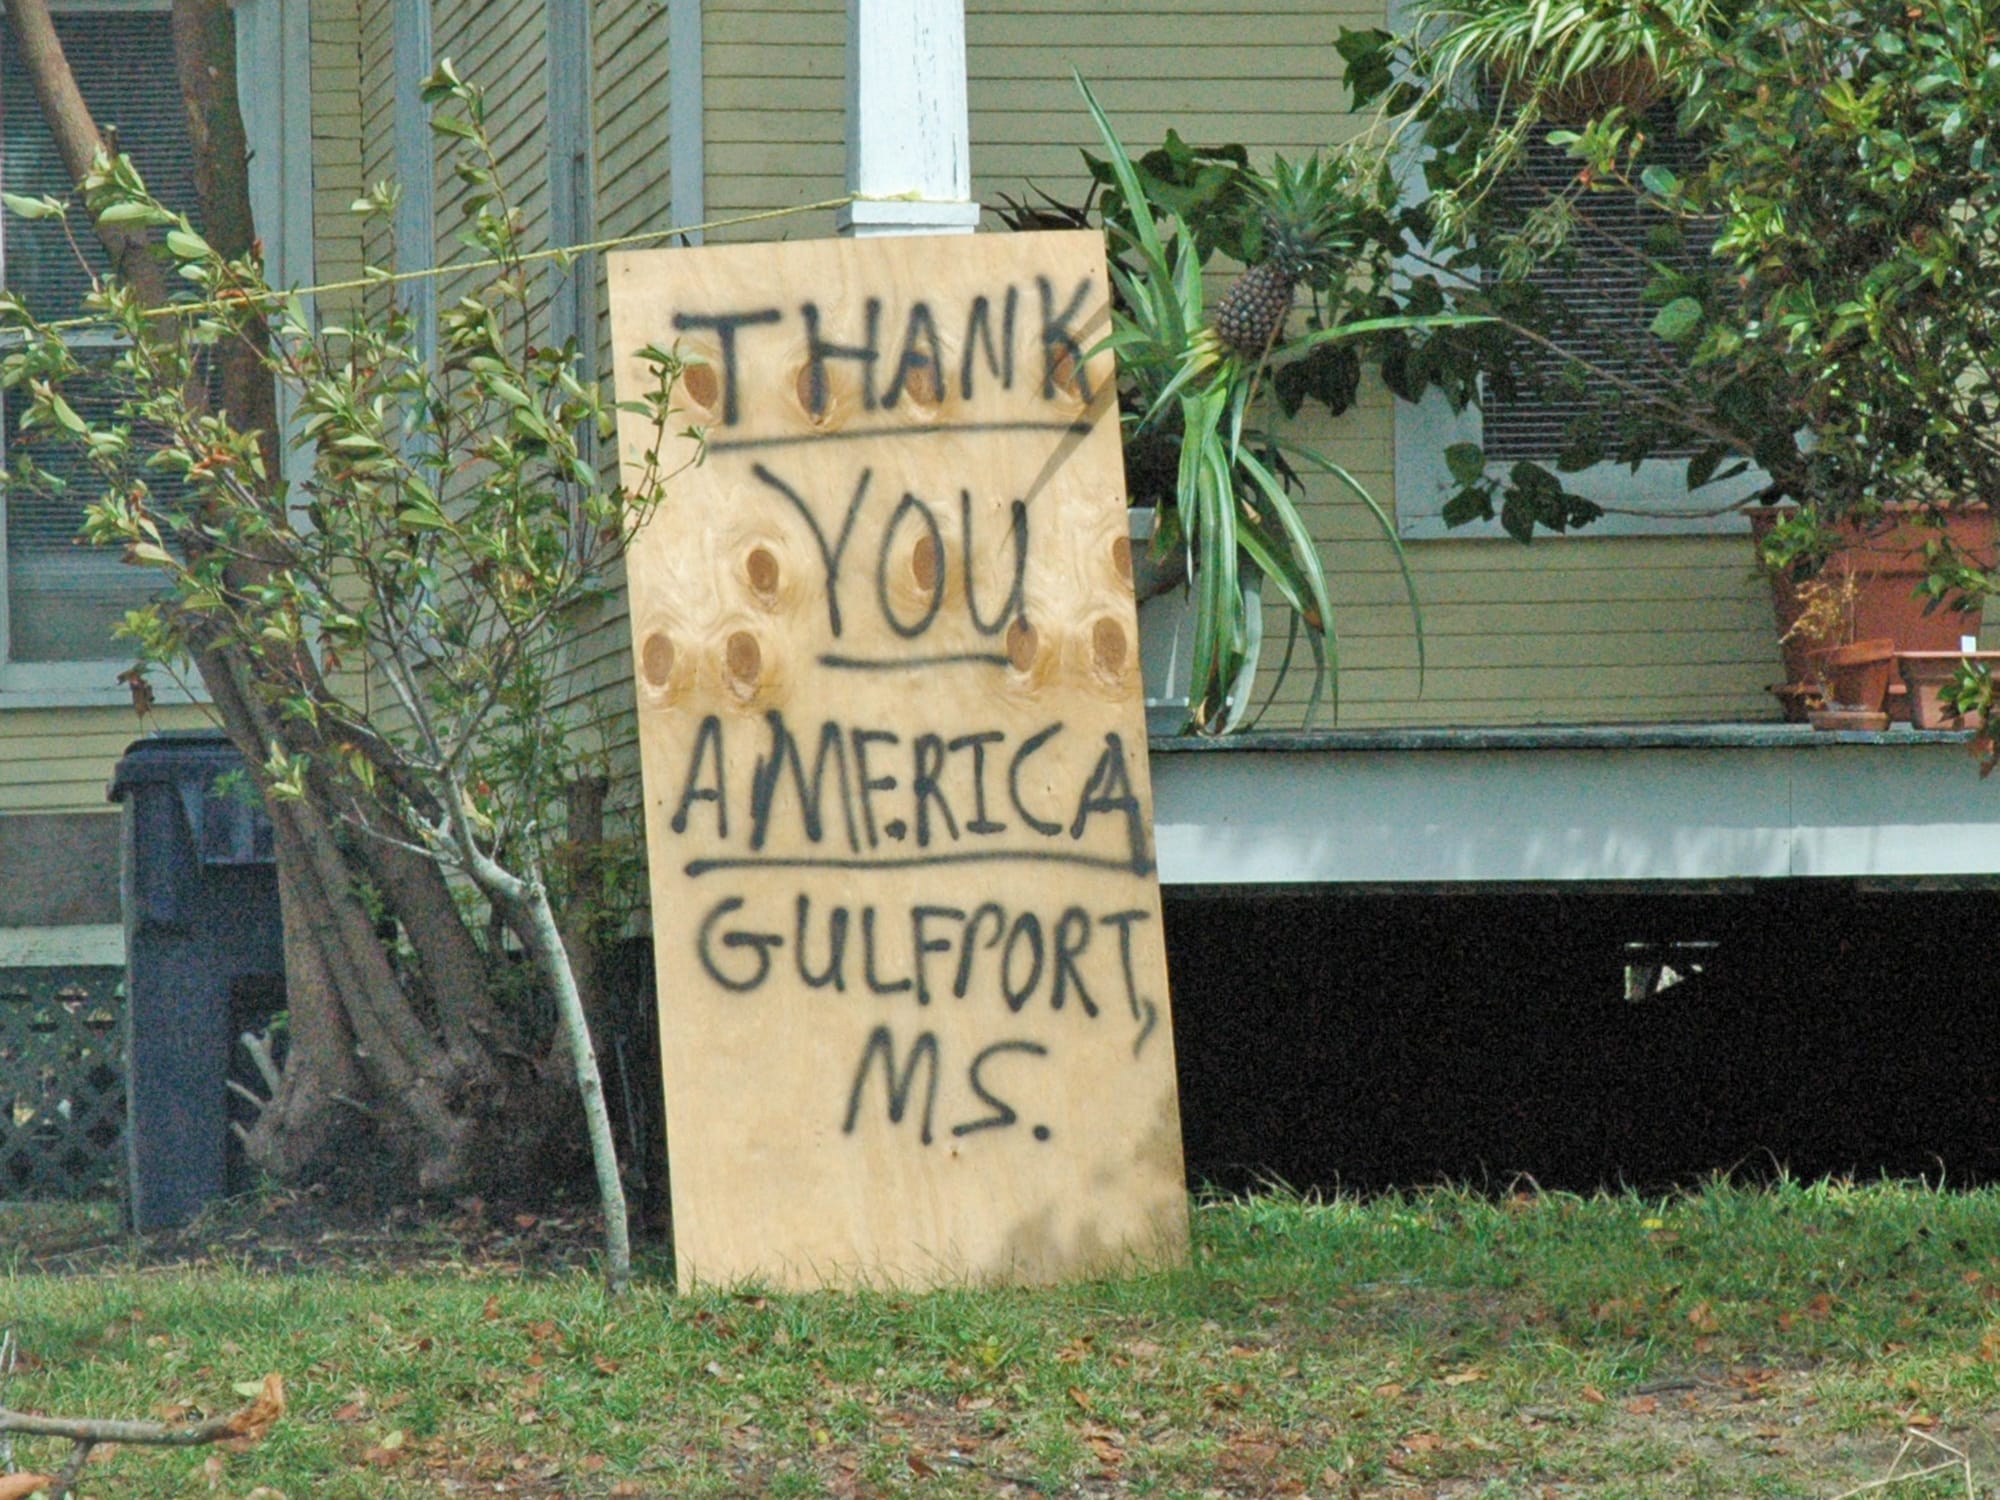 THANK
YOU
AMERICA
GULFPORT,
MS.